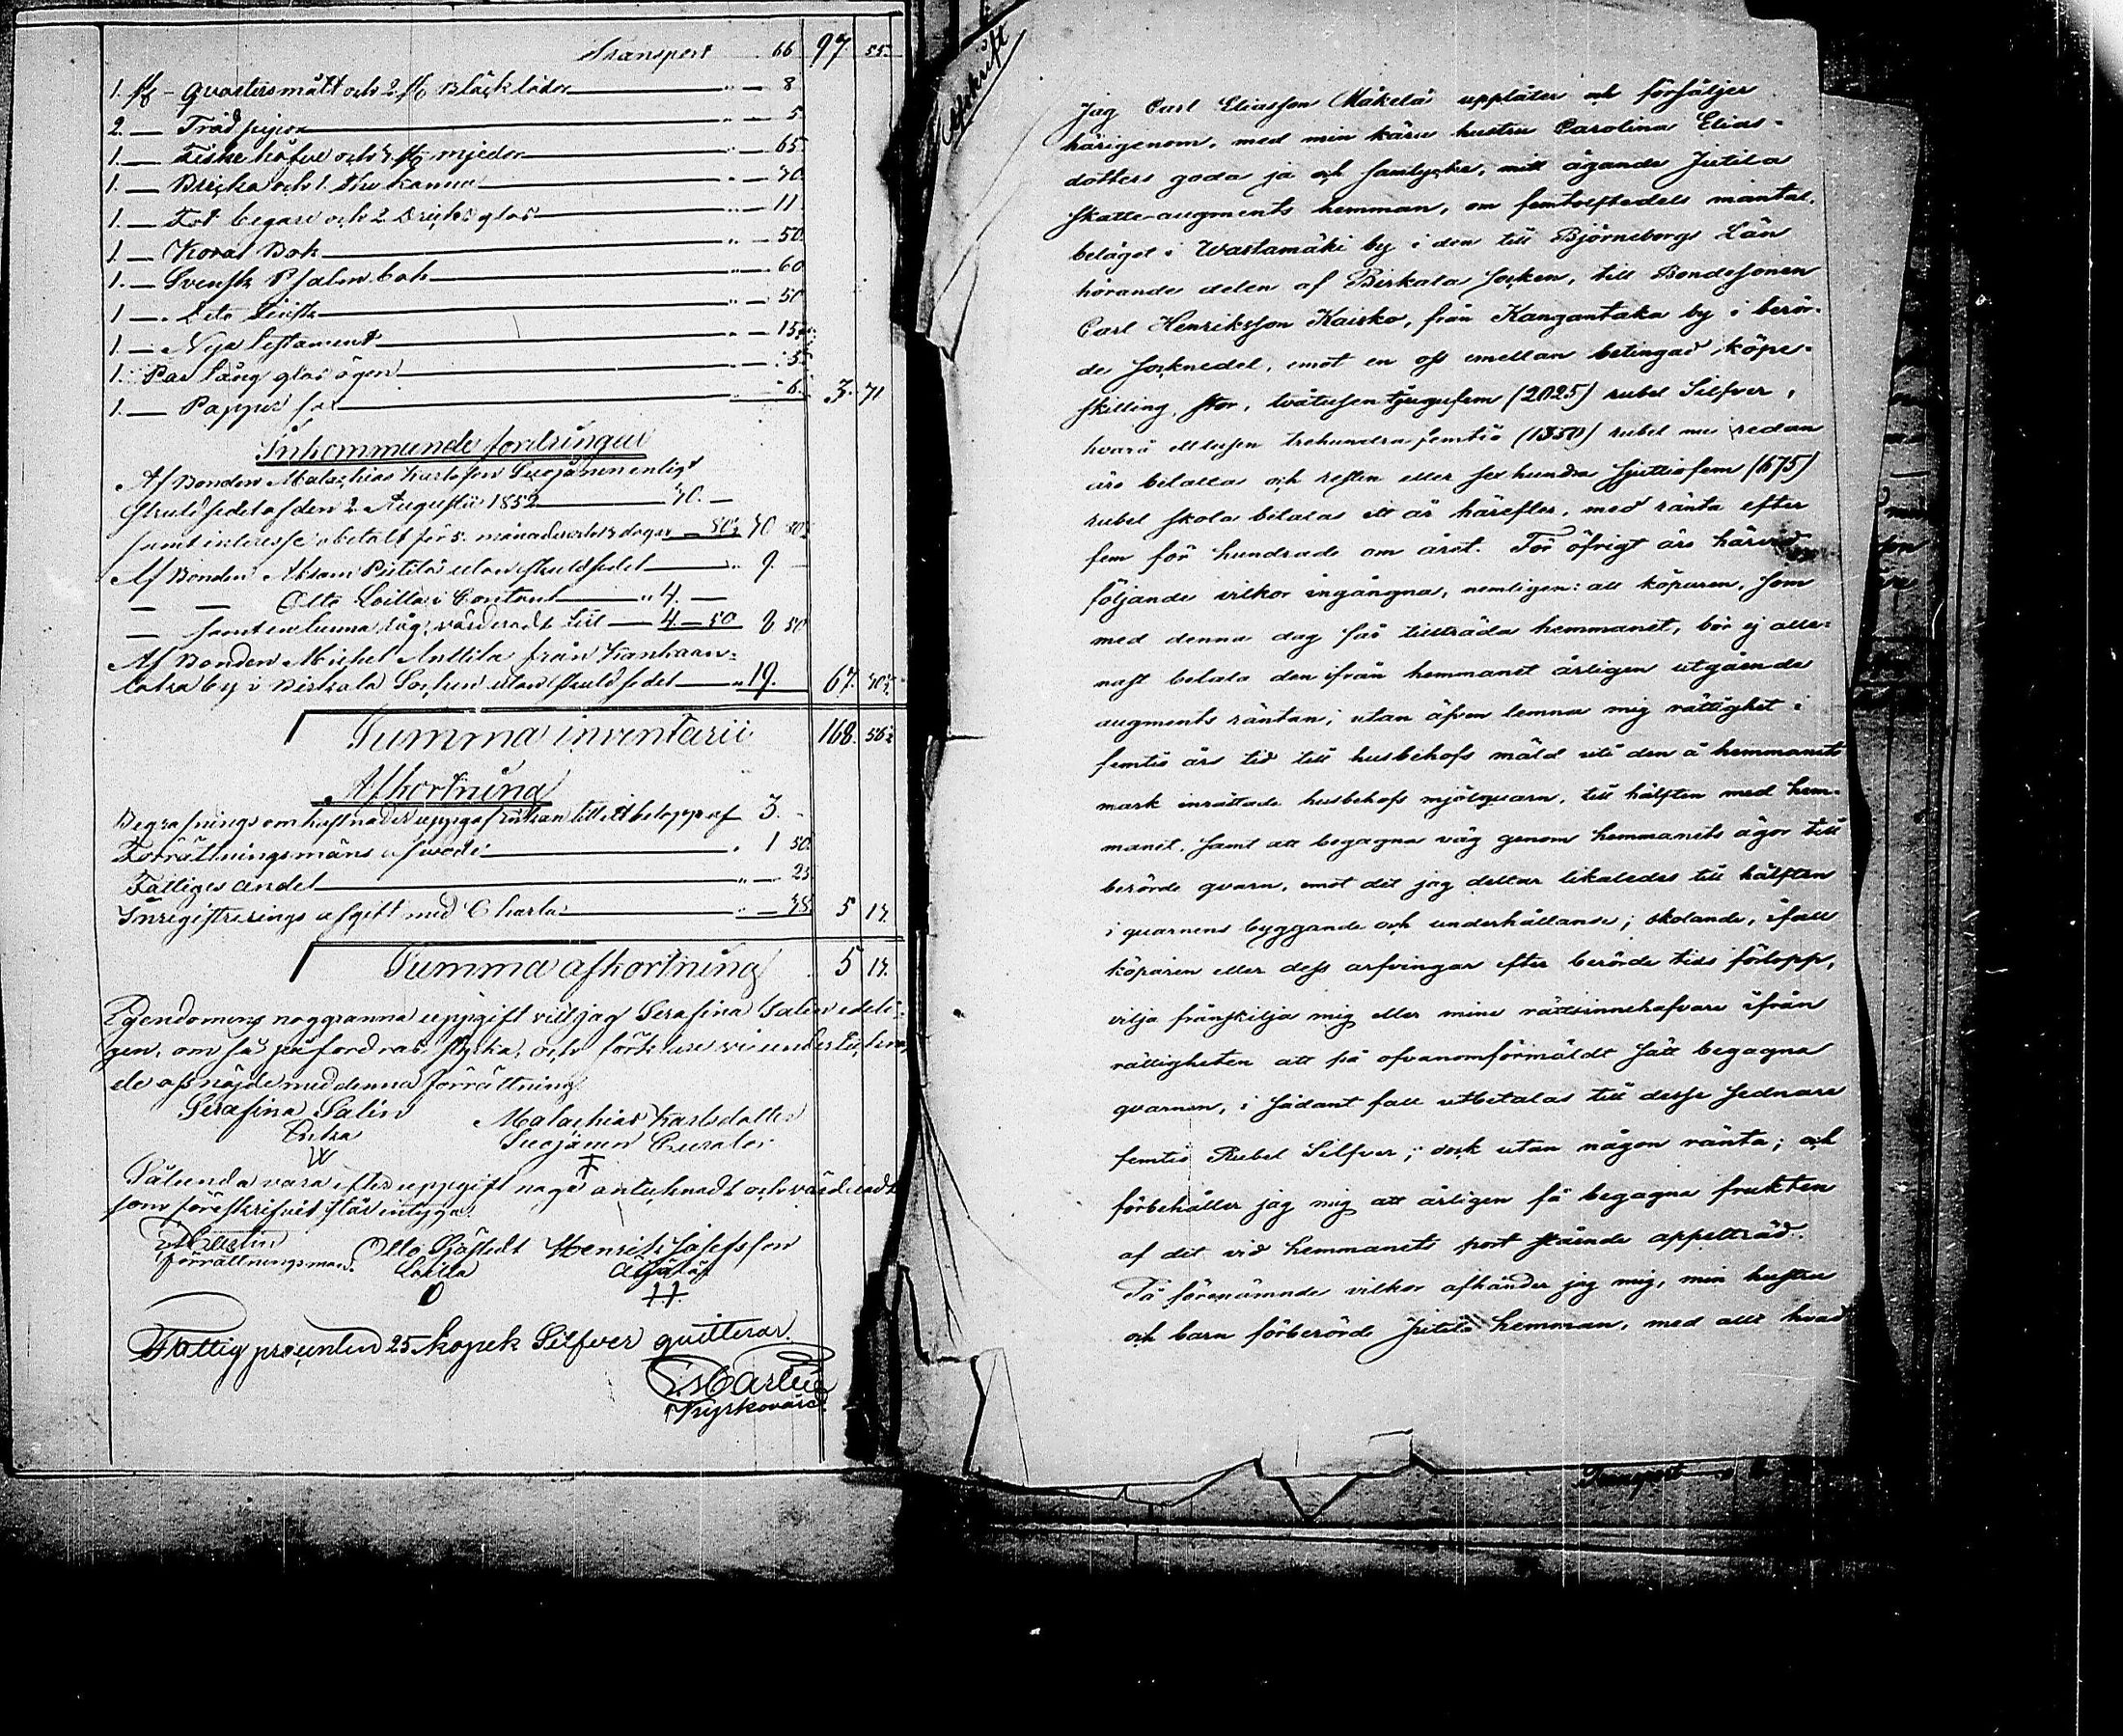 Transport 66 97 55
1. st - qvartersmått och 2 st Bläcklådor " — 8
2. — Träd " — 5
1. — Fiske håfve och 7 st mjedor " — 65
1. — Bricka och 1. The kanna " — 70
1. — Fot begare och 2 Dricks glas " — 11
1. — Koral Bok " — 50
1. — Svensk Psalm bok " — 60
1. — Dito Finsk " — 50
1. — Nya testament " — 15
1. Par lång glas ögon " 5
1. — Pappers sax " 6. 3. 71
Inkommande fordringar
Af Bonden Malachias Karlsson Suojanen enligt
skuldsedel af den 2 Augustii 1852 70. —
samt interesse obetalt för 5. månader och dagar
Af Bonden Abram Pietilä utan skuldsedel " 9. —
— — Otto Loilla i Contant " 4. —
— samt en tunna råg, värderadt till 4 — 50 8 50
Af Bonden Michel Anttila från Kankaan-
taka by i Birkala Socken utan skuldsedel " 19. 67.
Summa inventarii 168.
Afkortning
Begrafnings omkostnader uppgaf Enkan till ett belopp af 3. -
Förrättningsmäns arfwode " 1 50
Fattiges andel " — 25
Inregistrerings afgift med Charta " 5 17.
Summa afkortning 5 17.
Egendomens noggranna uppgift vill jag Serafina Salin edeli-
gen, om så påfordras styrka, och förklare vi undertecknа-
de oss nöjde med denna förrättning
Serafina Salin Malachias Karlsdotter
Enka Suojanen Curator
Sålunda vara efter uppgift noga antecknadt och värderadt
som föreskrifvit står intyga.
Förrättningsman. Otto Sjöstedt Henrik Josefsson
Loilla
Fattig procenten 25 kopek Silfver qvitterar.
Kyrkovärd.
Afskrift
Jag Carl Eliasson Mäkelä upplåter och försäljer
härigenom, med min kära hustru Carolina Elias-
dotters goda ja och samtycke, mitt ägande Jutila
skatte-augments hemman, om femtolftedels mantal,
beläget i Wastamäki by i den till Björneborgs Län
hörande delen af Birkala Socken, till Bondesonen
Carl Henriksson Kaisko, från Kangantaka by i berör-
de Socknedel, emot en oss emellan betingad köpe-
skilling, stor, tvåtusen tjugufem (2025) rubel Silfver,
hvara ettusen trehundra femtio (1350) rubel nu redan
äro betalta och resten eller sexhundra sjuttiofem (675)
rubel skola betalas ett år härefter, med ränta efter
fem för hundrade om året. För öfrigt äro härvid
följande vilkor ingångna, nemligen: att köparen, som
med denna dag får tillträda hemmanet, bör ej alle-
nast betala den ifrån hemmanet årligen utgående
augments räntan, utan äfven lemna mig rättighet i
femtio års tid till husbehofs mäld uti den å hemmanets
mark inrättade husbehofs mjölqvarn, till hälften med hem-
manet, samt att begagna väg genom hemmanets ägor till
berörde qvarn, emot det jag deltar likaledes till hälften
i qvarnens byggande och underhållande; skolande, ifall
köparen eller dess arfvingar efter berörde tids förlopp,
vilja frånskilja mig eller mine rättsinnehafvare ifrån
rättigheten att på ofvanomförmäldt sätt begagna
qvarnen, i sådant fall utbetalas till desse sednare
femtio Rubel Silfver; dock utan någon ränta; och
förbehåller jag mig att årligen få begagna frukten
af det vid hemmanets port stående appelträd.
På förenämnde vilkor afhänder jag mig, min hustru
och barn förberörde Jutila hemman, med allt hvad
Transport